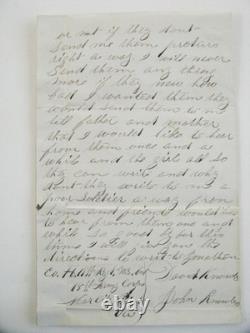 or not if they dont
Send me them picturs
right a way I will never
Send them any thing
more if they new how
bad I wanted them they
would send them to me
tell father and mother
that I would like to hear
from them once and a
while and the girls all so
they can write and why
dont they write to me a
poor Soldier a way from
home and friends would like
to hear from them once and
while So good by for this
time I will give you the
directions to write to Jonathan
Co H
15th Army Corps
John